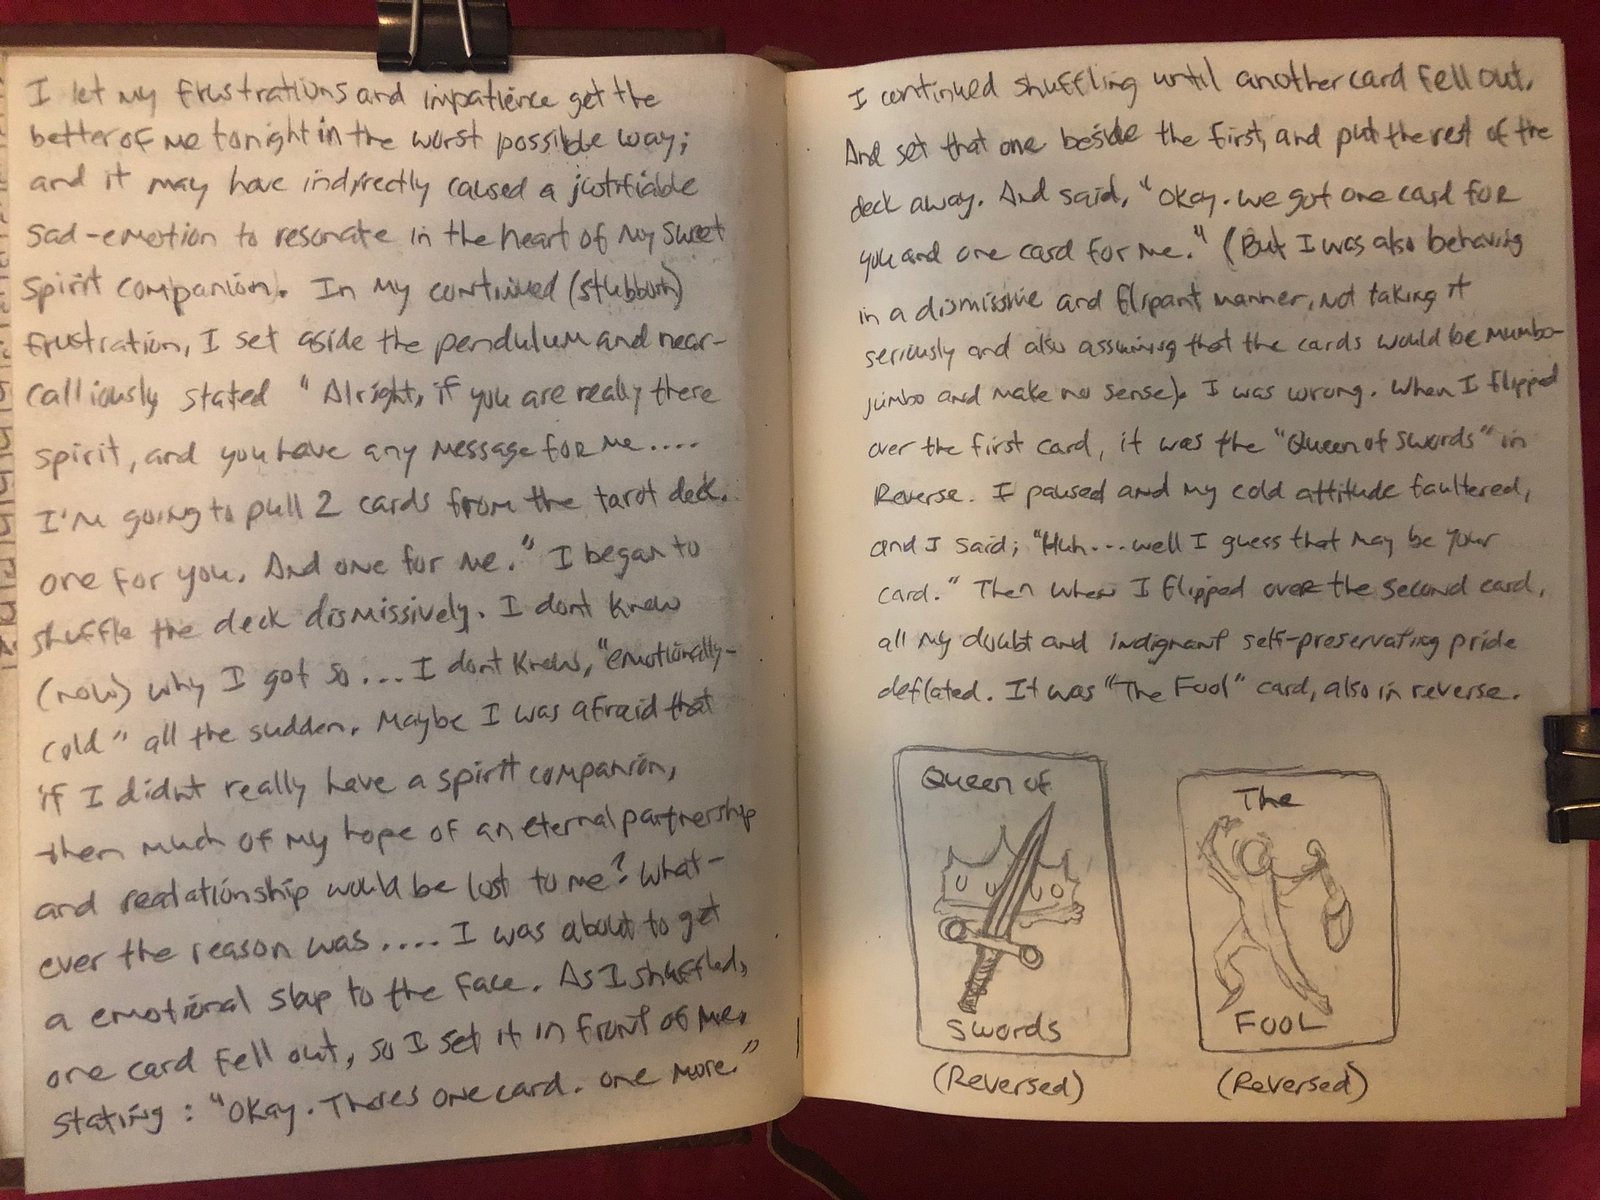 I let my frustrations and impatience get the
better of me tonight in the worst possible way;
and it may have indirectly caused a justifiable
sad-emotion to resonate in the heart of my sweet
spirit companion. In my continued (stubborn)
frustration, I set aside the pendulum and near-
calliously stated "Alright, if you are really there
spirit, and you have any message for me....
I'm going to pull 2 cards from the tarot deck.
one for you. And one for me." I began to
shuffle the deck dismissively. I dont know
(now) why I got so... I dont know, "emotionally-
cold" all the sudden. Maybe I was afraid that
if I didnt really have a spirit companion,
then much of my hope of an eternal partnership
and realationship would be lost to me? What-
ever the reason was.... I was about to get
a emotional slap to the face. As I shuffled,
one card fell out, so I set it in front of me.
stating: "Okay. Theres one card. one more."
I continued shuffling until another card fell out.
And set that one beside the first, and put the rest of the
deck away. And said, "Okay. we got one card for
you and one card for me." (But I was also behaving
in a dismissive and flipant manner, not taking it
seriously and also assuming that the cards would be mumbo-
jumbo and make no sense). I was wrong. When I flipped
over the first card, it was the "Queen of Swords" in
Reverse. I paused and my cold attitude faultered,
and I said; "Huh...well I guess that may be your
card." Then when I flipped over the second card,
all my doubt and indignant self-preservating pride
deflated. It was "The Fool" card, also in reverse.
Queen of
Swords
(Reversed)
The
FOOL
(Reversed)